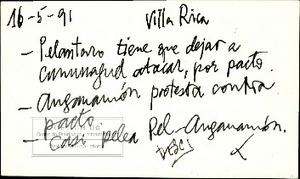 16-5-91 Villa Rica
- Pelantaro tiene que dejar a
cununaguel atacar, por pacto.
- Anganamón protesta contra
pacto.
- Casi pelea Pel-Anganamón.